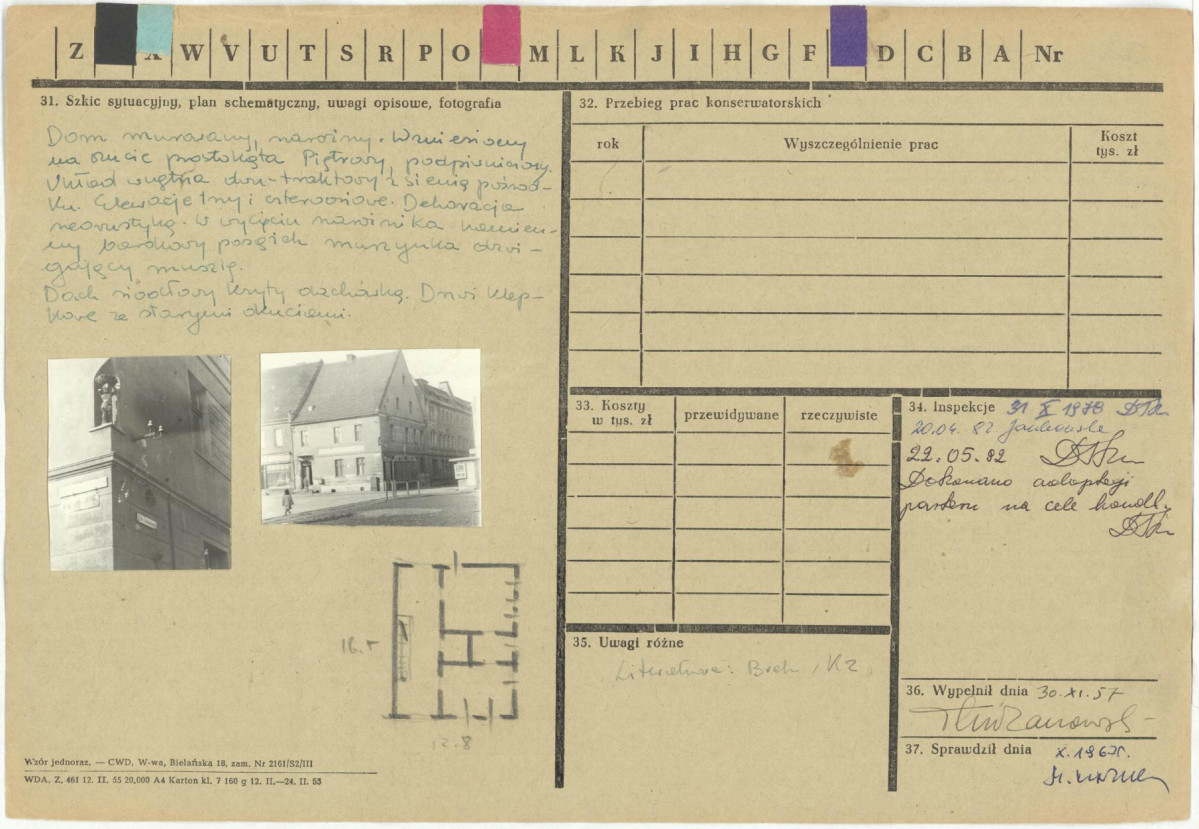 Z W V U T S R P O M L K J I H G F D C B A Nr
31. Szkic sytuacyjny, plan schematyczny, uwagi opisowe, fotografia
Dom murowany, narożny. Wzniesiony
na rzucie prostokąta Piętrowy, podpiwniczony.
Układ wnętrza dwu-traktowy z sienią pośrod-
ku. Elewacje trzy i czteroosiowe. Dekoracja
W wycięciu narożnika kamien-
ny barokowy posążek murzynka dźwi-
gający muszlę.
Dach siodłowy kryty dachówką. Drzwi klep-
kowe ze starymi okuciami.
12.8
Wzór jednoraz. — CWD, W-wa, Bielańska 18, zam. Nr 2161/S2/III
WDA. Z. 461 12. II. 55 20,000 A4 Karton kl. 7 160 g 12. II.—24. II. 55
32. Przebieg prac konserwatorskich
rok
Wyszczególnienie prac
Koszt
tys. zł
33. Koszty
w tys. zł
przewidywane
rzeczywiste
34. Inspekcje 31 X 1978
20.04. 82. Jankowska
22.05.82
Dokonano adaptacji
parteru na cele handl.
35. Uwagi różne
Literatura: KZ
36. Wypełnił dnia 30.XI.57
37. Sprawdził dnia